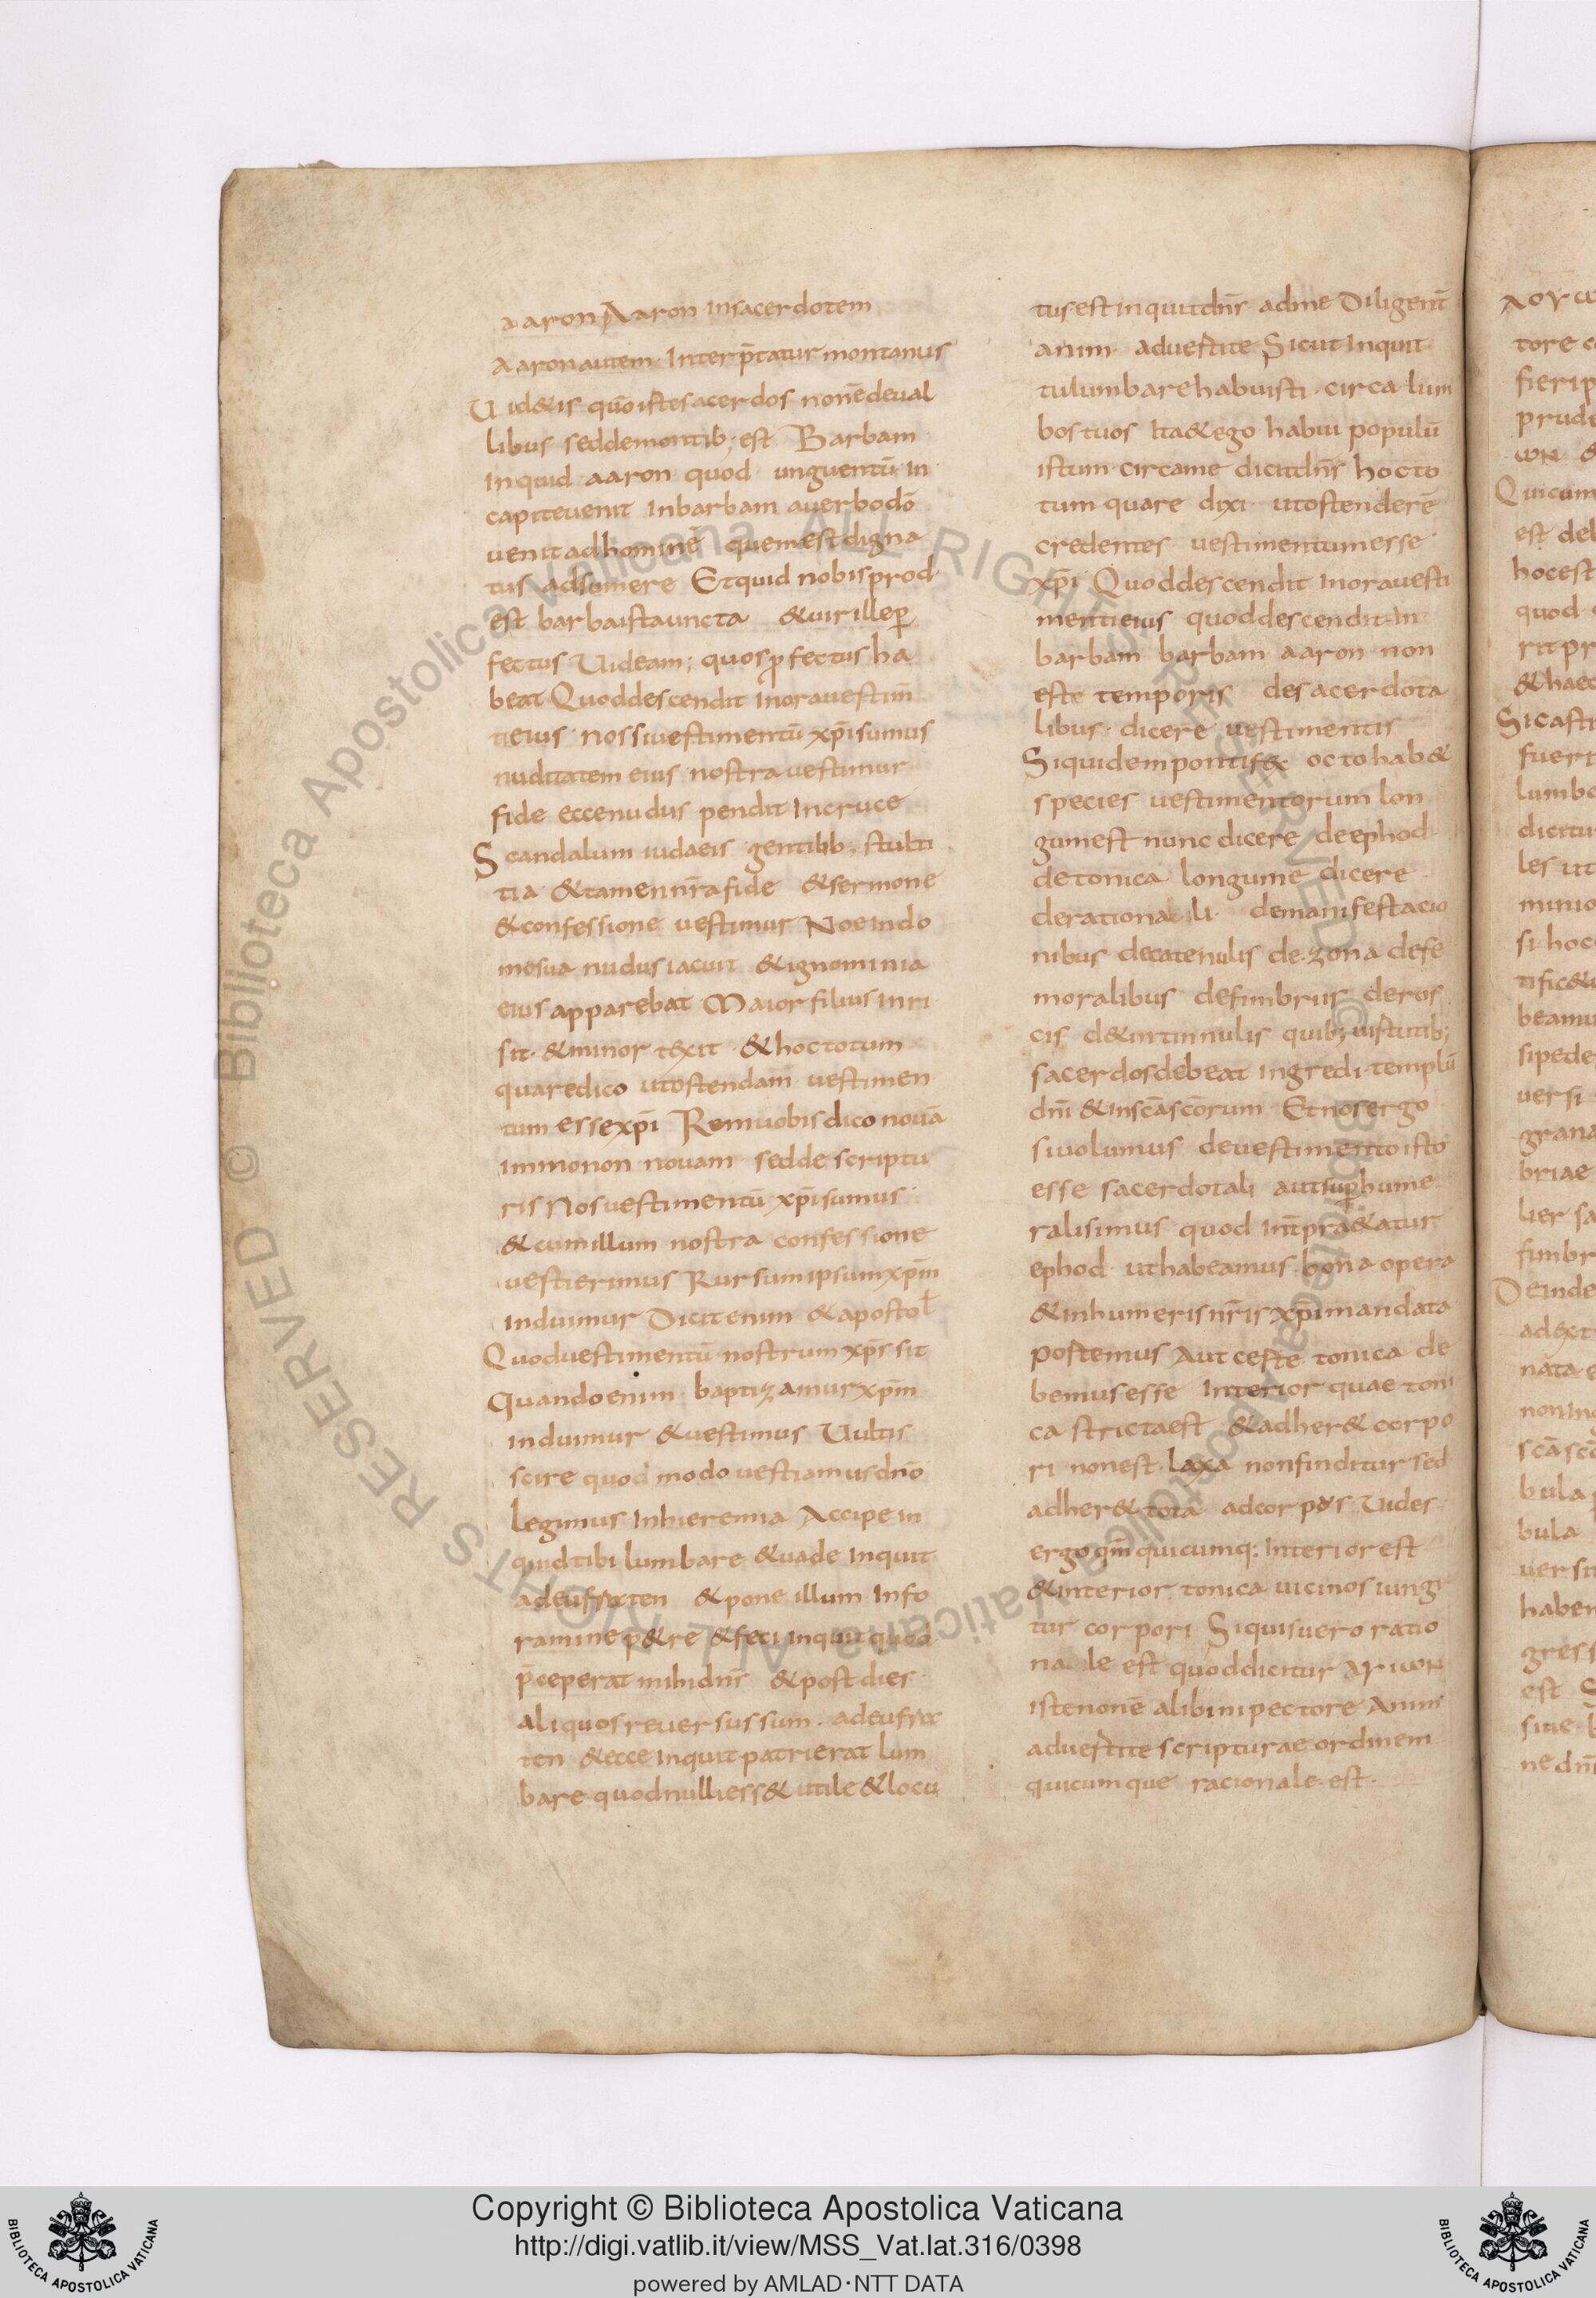 aaron Aaron insacerdotem
Aaronautem. Interp̄tatur montanus
Uid&is quōistesacerdos nonēdeual
libus seddemontib; est Barbam
inquid aaron quod unguentū in
capiteuenit inbarbam auerbodō
uenitadhominē quemestdigna
tus adsumere Etquid nobisprod
est barbaistauncta &uirillep̄
fectus Uideam; quosp̄fectus ha
beat Quoddescendit inorauestim̄
tieius. nossiuestimentū xp̄isumus
nuditatem eius nostrauestimur
fide eccenudus pendit incruce
Scandalum iudaeis gentibb. stulti
tia &tamennr̄afide &sermone
&confessione uestimur Noeindo
mosua nudusiacuit &ignominia
eius apparebat Maior filius inri
sit. &minor texit. &hoctotum
quaredico utostendam uestimen
tum essexp̄i Remuobisdico nouā
immonon nouam sedde scriptu
ris Nosuestimentū xp̄isumus
&cumillum nostra confessione
uestierimus Rursumipsumxp̄m
induimur Dicitenim &apostoł
Quoduestimentū nostrum xp̄s sit
Quandoenim. baptizamurxp̄m
induimur &uestimus Uultis
scire quod modo uestiamusdnō
legimus inhieremia Accipe in
quidtibi lumbare &uade inquit
adeufraten &pone illum info
raminep&re &feci inquit quod
p̄ceperat mihidn̄s &post dies
aliquosreuersussum. adeufra
ten &ecce inquitpatrierat lum
bare quodnulliess& utile &locu
tus.estinquitdn̄s adme Diligent̄
arum. aduertite Sicut inquit
tulumbarehabuisti. circa lum
bostuos Ita&ego habui populū
istum. circame dicitdn̄s hocto
tum quare dixi. utostenderē
credentes uestimentumesse
xp̄i Quoddescendit inorauesti
mentieius quoddescendit in
barbam barbam aaron non
este temporis desacerdota
libus. dicere uestimentis
Siquidempontif& octohab&
species uestimentorum lon
gumest nunc dicere deephod
detonica longumē dicere
derationa li. demanifestacio
nibus decatenulis de.zona defe
moralibus defimbriis deros
cis d&intinnulis quib; uistitib;
sacerdosdebeat ingredi templū
dn̄i &insc̄asc̄orum Etnosergo
siuolumus deuestimentoisto
esse sacerdotali autsup̄hume
ralisimus quod int̄pra&atur
ephod. uthabeamus bona opera
&inhumerisnr̄is xp̄imandata
postemus Autceste tonica de
bemusesse interior quae toni
ca strictaest &adher& corpo
ri nonest laxa nonfinditursed
adher& tota adcorpos Uides
ergoqm̄quicumq: interiorest
&interior tonica uicinosiungi
tur corpori Siquisuero ratio
na le est quoddicitur ΛΡΙWN
istenonē alibinipectore Anim
aduertite scripturaeordinem
quicumque racionale.est.
Copyright © Biblioteca Apostolica Vaticana
http://digi.vatlib.it/view/MSS_Vat.lat.316/0398
powered by AMLAD·NTT DATA
BIBLIOTECA APOSTOLICA VATICANA
BIBLIOTECA APOSTOLICA VATICANA